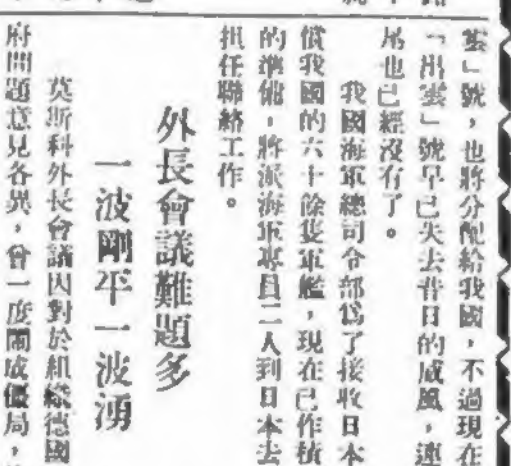 雲」號，也將分配給我國，不過現在
「出雲」號早已失去昔日的威風，連
尾也已經沒有了。
我國海軍總司令部爲了接收日本
償我國的六十餘隻軍艦，現在已作積
的準備，將派海軍專員二人到日本去
担任聯絡工作。
外長會議難題多
一波剛平一波湧
莫斯科外長會議因對於組織德國
府問題意見各異，曾一度鬧成僵局，